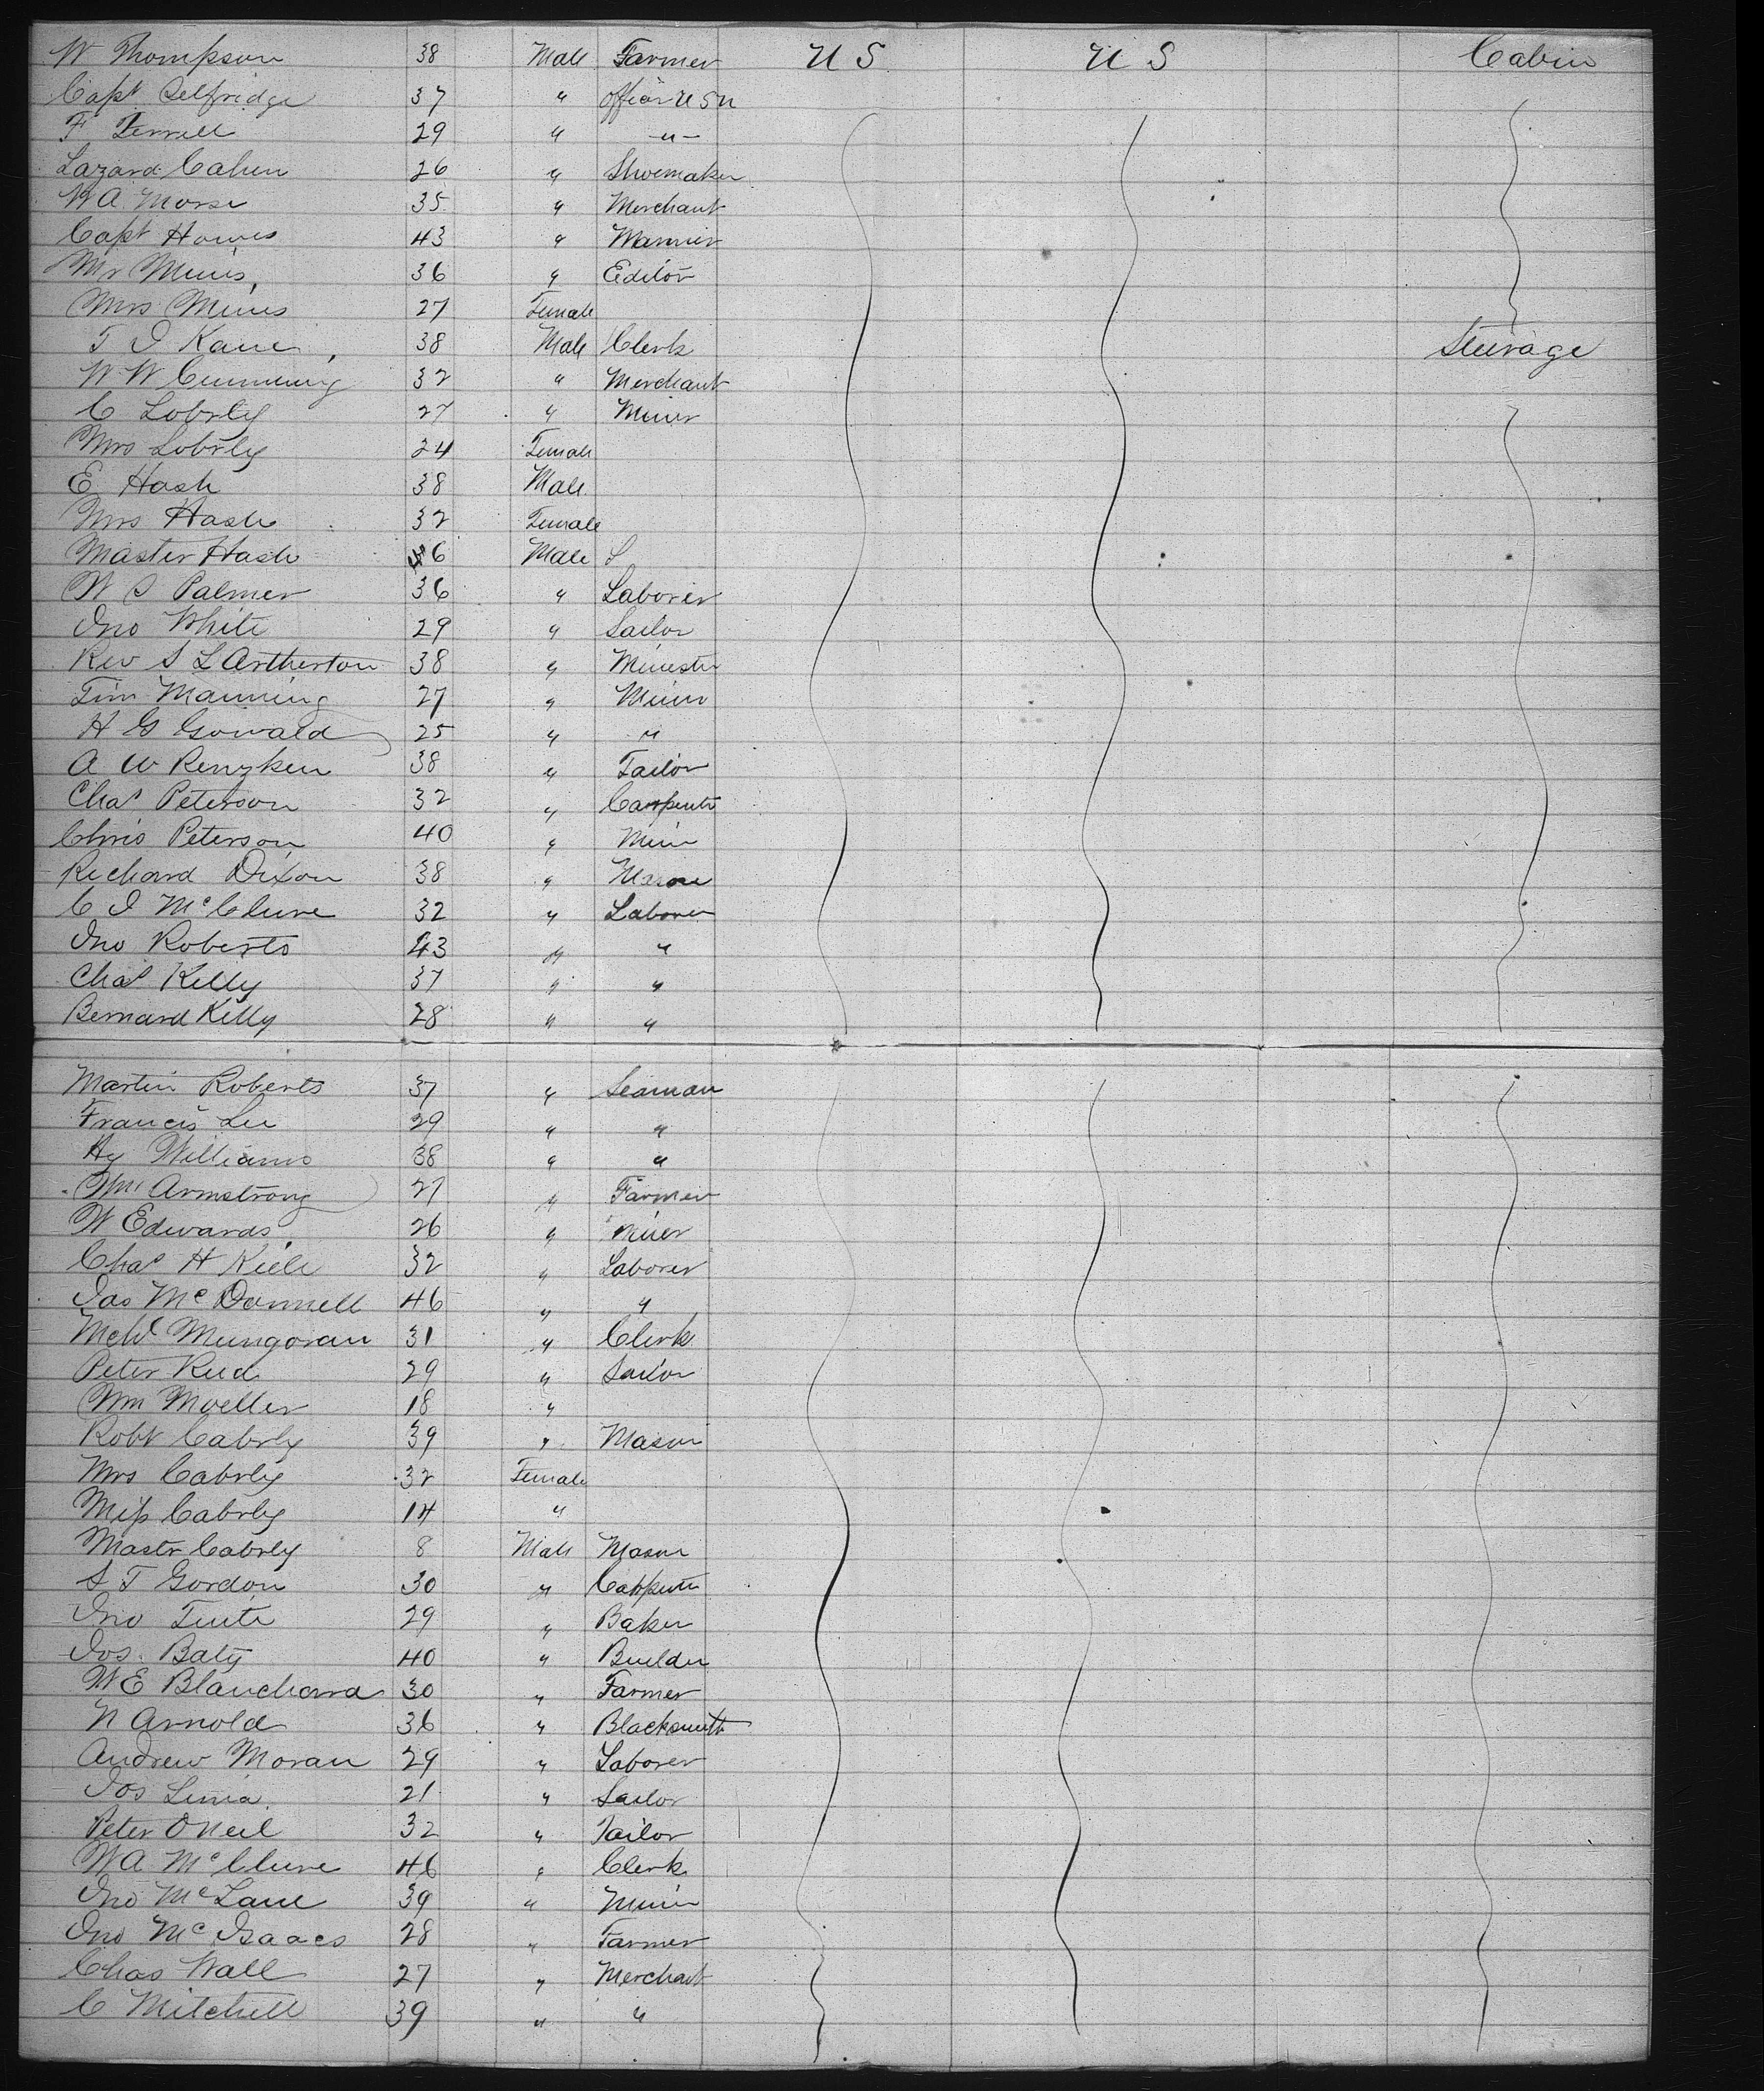 W Thompson 38 Male Farmer U S U S Cabin
Capt Selfridge 37 " Officer U S N
F Terrell 29 " -"-
Lazard Cahen 26 " Shoemaker
W A Morse 35 " Merchant
Capt Howes 43 " Mariner
Mr Mines, 36 " Editor
Mrs Mines 27 Female
T J Kane, 38 Male Clerk Steerage
W W Cumming 32 " Merchant
C Lobsly 27 " Miner
Mrs Lobsly 24 Female
E Hash 38 Male
Mrs Hash 32 Female
Master Hash 6 Male
W S Palmer 36 " Laborer
Jno White 29 " Sailor
Rev S L Artherton 38 " Minister
Tim Manning 27 " Miner
H G Gowald 25 " "
A W Renzken 38 " Tailor
Chas Peterson 32 " Carpenter
Chris Peterson 40 " Miner
Richard Dixon 38 " Mason
C J McClure 32 " Laborer
Jno Roberts 43 " "
Chas Kelly 37 " "
Bernard Kelly 28 " "
Martin Roberts 37 " Seaman
Francis Lee 29 " "
Hy Williams 38 " "
Wm Armstrong 27 " Farmer
W Edwards 26 " Miner
Chas H Kiele 32 " Laborer
Jas McDonnell 46 " "
Mchl Mungovan 31 " Clerk
Peter Reed 29 " Sailor
Wm Moeller 18 "
Robt Cabrly 39 " Mason
Mrs Cabrly 32 Female
Miss Cabrly 14 "
Mastr Cabrly 8 Male Mason
S T Gordon 30 " Carpenter
Jno Tente 29 " Baker
Jos. Baty 40 " Builder
W E Blanchard 30 " Farmer
N Arnold 36 " Blacksmith
Andrew Moran 29 " Laborer
Jos Linia 21 " Sailor
Peter O Neil 32 " Tailor
W A McClure 46 " Clerk
Jno McLane 39 " Miner
Jno McIsaacs 28 " Farmer
Chas Wall 27 " Merchant
C Mitchell 39 " "